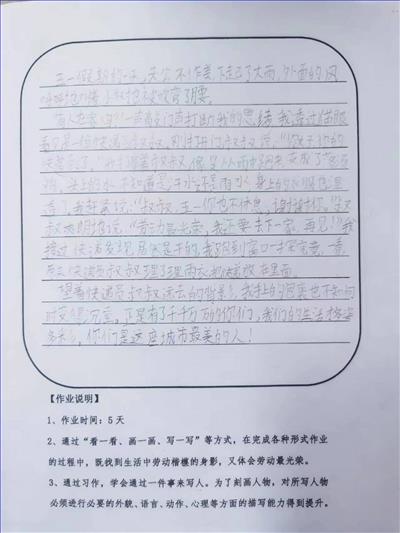 五一假期的一天，天公不作美，下起了大雨，外面的风
呼呼地吹，小树也被吹弯了腰。
"有人在家吗？"一声高喊门声打断了我的思绪，我透过猫眼
看只是一位快递员叔叔，刚打开门，叔叔说："小朋友，你的
快递到了。"叔叔像是从雨中
鸡，头上的水不知道是汗水还是雨水，身上的衣服也湿
透了。我赶紧说："叔叔，五一你也不休息，谢谢你。"
叔叔爽朗地说："劳动最光荣，我还要去下一家，再见！"我
接过快递发现居然是干的，我跑到窗口一探究竟，看
到快递员叔叔理了理雨衣，把快递放在里面。
望着快递员叔叔远去的背影，我手上的包裹也不知何
时变得沉了，正是有了千千万万的你们，我们的生活才丰富
多彩，你们是这座城市最美的人！
【作业说明】
1、作业时间：5天
2、通过"看一看、画一画、写一写"等方式，在完成各种形式作业
的过程中，既找到生活中劳动楷模的身影，又体会劳动最光荣。
3、通过习作，学会通过一件事来写人。为了刻画人物，对所写人物
必须进行必要的外貌、语言、动作、心理等方面的描写能力得到提升。